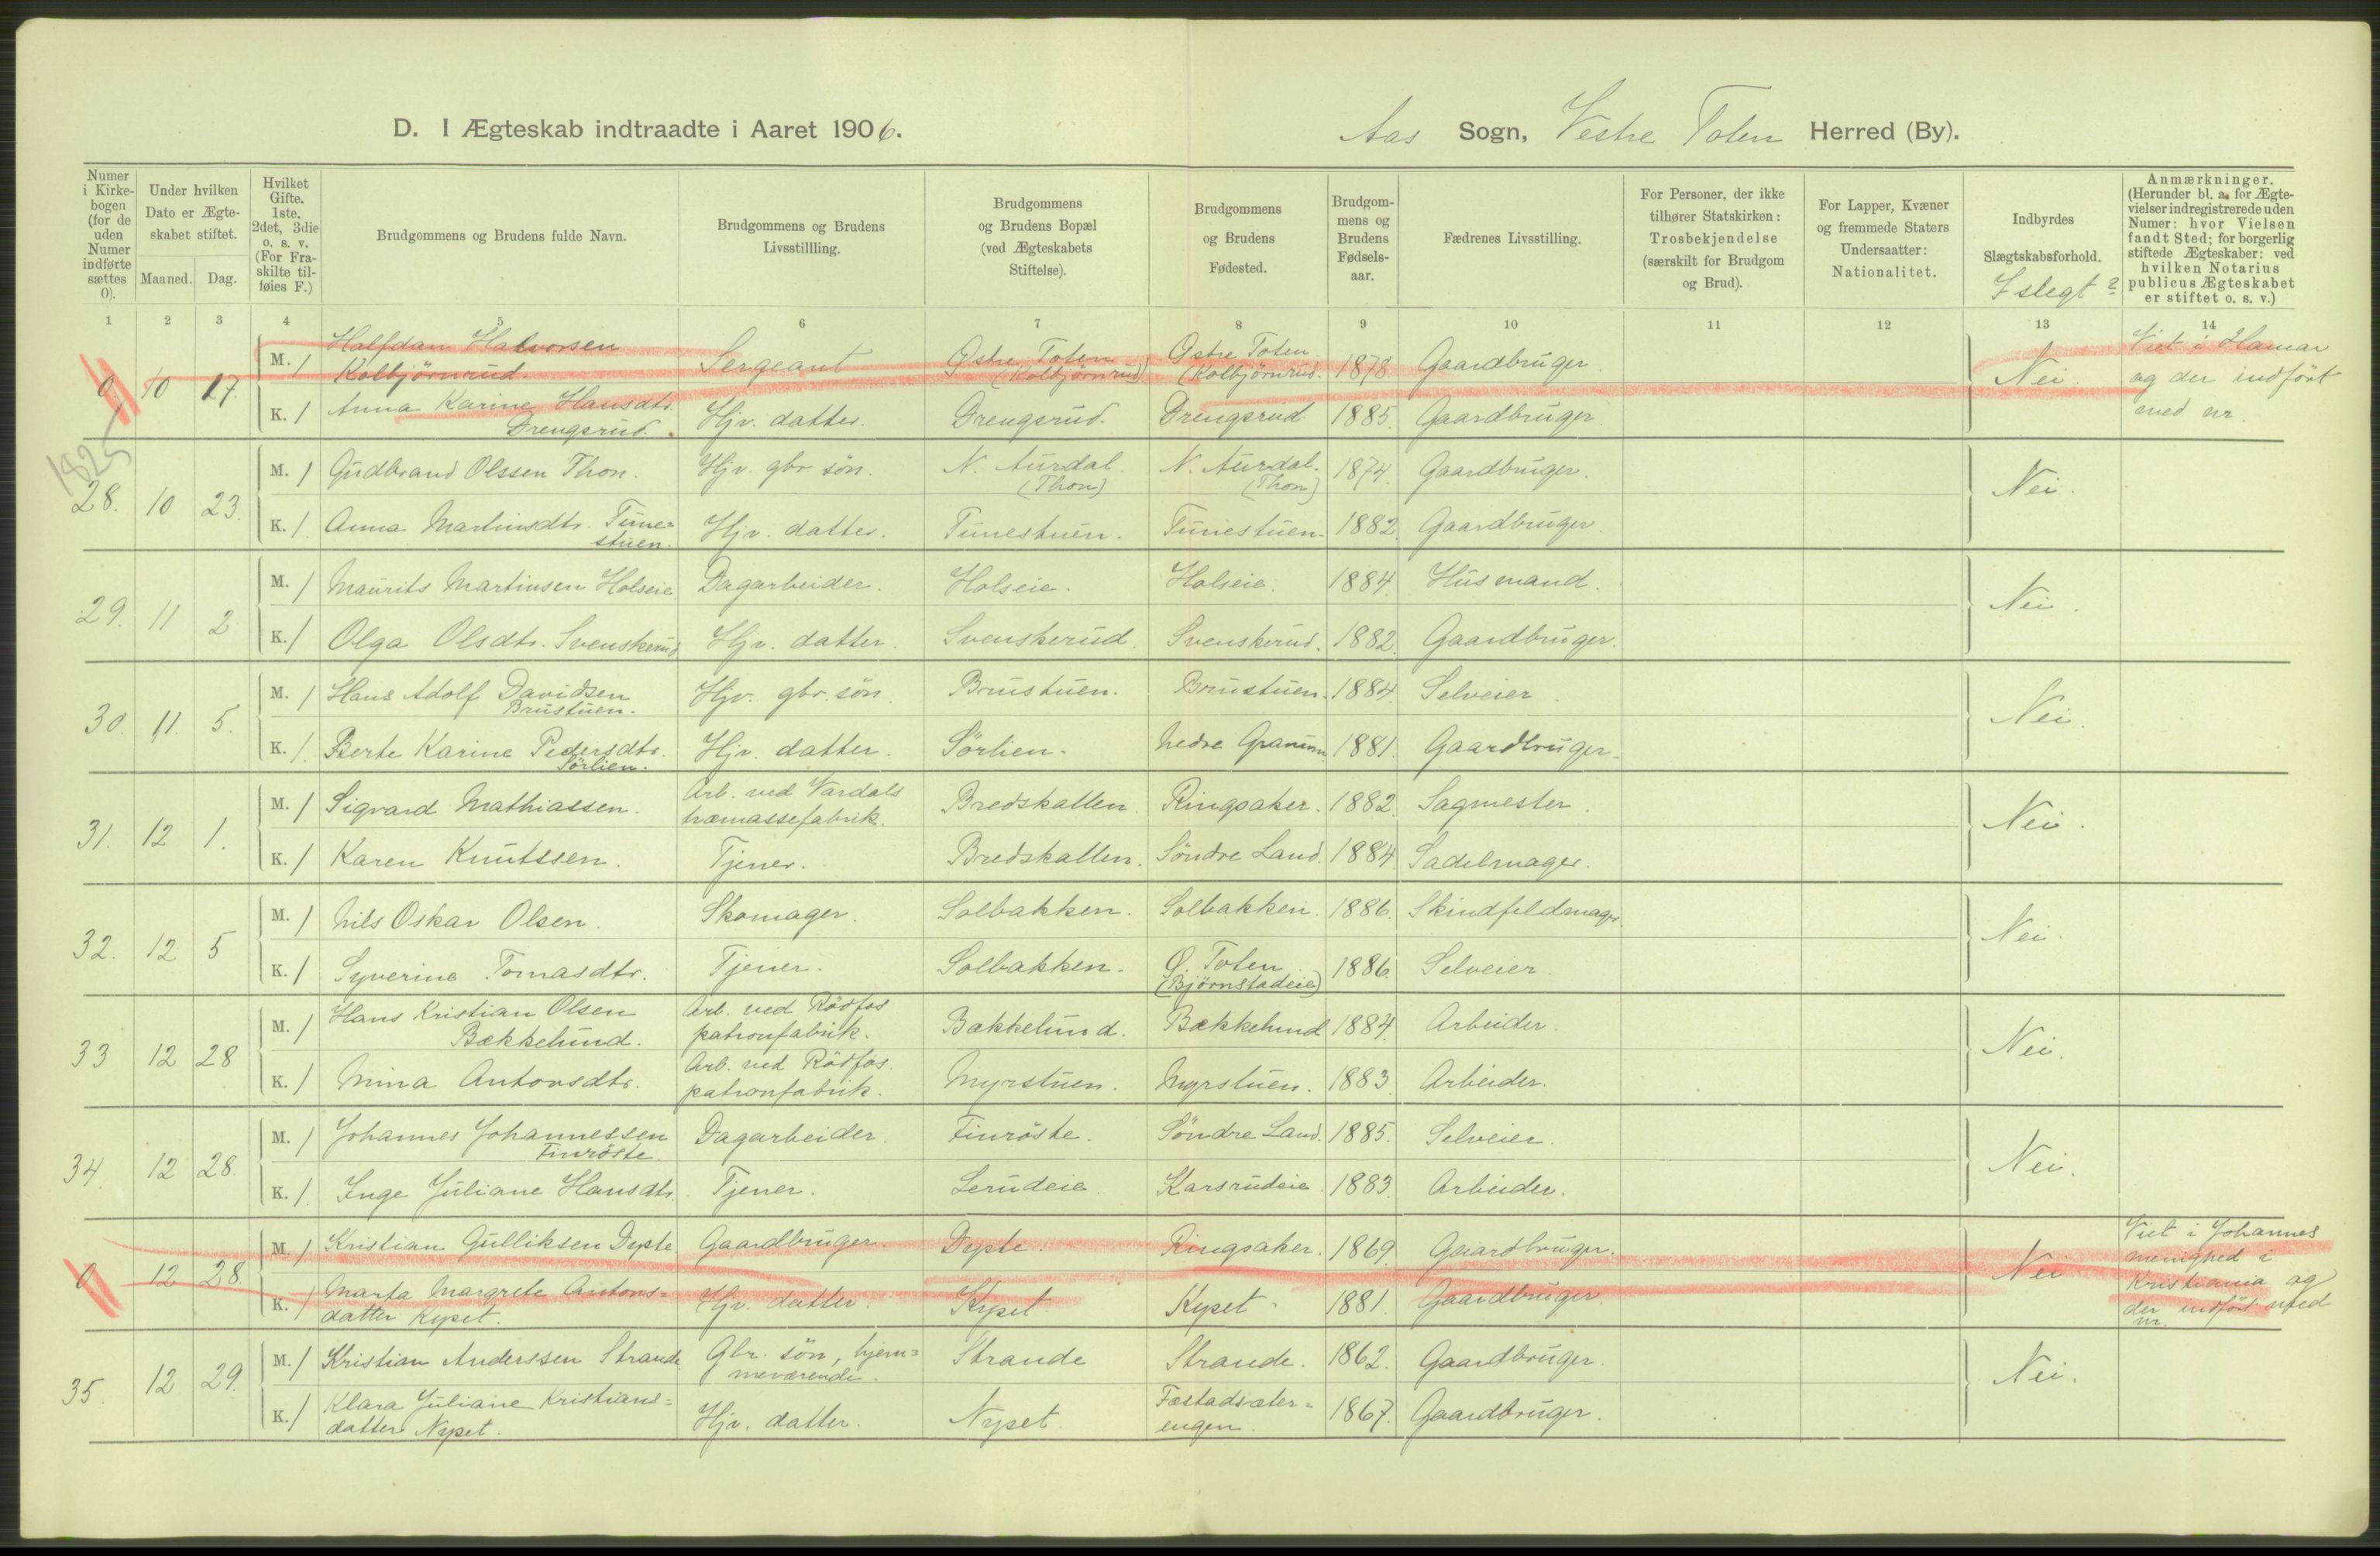 D. I Ægteskab indtraadte i Aaret 1906.
Aas Sogn, Vestre Toten Herred (By).
Numer i Kirkebogen (for de uden Numer indførte sættes 0).
Under hvilken Dato er Ægteskabet stiftet.
Maaned. Dag.
Hvilket Gifte. 1ste, 2det, 3die o. s. v. (For Fraskilte tilføies F.)
Brudgommens og Brudens fulde Navn.
Brudgommens og Brudens Livsstillling.
Brudgommens og Brudens Bopæl (ved Ægteskabets Stiftelse).
Brudgommens og Brudens Fødested.
Brudgommens og Brudens Fødselsaar.
Fædrenes Livsstilling.
For Personer, der ikke tilhører Statskirken: Trosbekjendelse (særskilt for Brudgom og Brud).
For Lapper, Kvæner og fremmede Staters Undersaatter: Nationalitet.
Indbyrdes Slægtskabsforhold.
I slegt?
Anmærkninger. (Herunder bl. a. for Ægtevielser indregistrerede uden Numer: hvor Vielsen fandt Sted; for borgerlig stiftede Ægteskaber: ved hvilken Notarius publicus Ægteskabet er stiftet o. s. v.)
1 2 3 4 5 6 7 8 9 10 11 12 13 14
0 10 17. M. / Halfdan Halvorsen Kolbjörnrud. Sergeant Østre Toten (Kolbjörnrud) Østre Toten (Kolbjörnrud. 1878 Gaardbruger. Nei. Viet i Hamar og der indfört med nr.
K. / Anna Karine Hansdtr. Drengsrud. Hjv. datter. Drengsrud. Drengsrud 1885. Gaardbruger.
1825
28. 10 23. M. / Gudbrand Olssen Thon. Hjv. gbr. sön. N. Aurdal. (Thon) N. Aurdal. (Thon) 1874. Gaardbruger. Nei.
K. / Anna Martinsdtr. Tune=stuen. Hjv. datter. Tunestuen. Tunestuen. 1882. Gaardbruger.
29. 11 2 M. / Maurits Martinsen Holseie Dagarbeider. Holseie. Holseie. 1884. Husmand. Nei.
K. / Olga Olsdtr. Svenskerud Hjv. datter. Svenskerud. Svenskerud. 1882. Gaardbruger.
30. 11. 5. M. / Hans Adolf Davidsen Brustuen. Hjv. gbr. sön. Brustuen. Brustuen. 1884. Selveier. Nei.
K. / Berte Karine Pedersdtr. Sörlien. Hjv. datter. Sörlien. Nedre Granum 1881. Gaardbruger.
31. 12 1. M. / Sigvard Mathiassen. Arb. ved Vardals træmassefabrik. Bredskallen. Ringsaker. 1882. Sagmester. Nei.
K. / Karen Knutssen. Tjener. Bredskallen. Söndre Land. 1884 Sadelmager.
32. 12 5 M. / Nils Oskar Olsen. Skomager. Solbakken. Solbakken. 1886. Skindfeldmager. Nei.
K. / Syverine Tomasdtr. Tjener. Solbakken. Ø. Toten (Bjørnstadeie) 1886. Selveier.
33 12 28 M. / Hans Kristian Olsen Bækkelund. Arb. ved Rödfos patronfabrik. Bakkelund. Bækkelund 1884. Arbeider. Nei.
K. / Mina Antonsdtr. Arb. ved Rödfos patronfabrik. Myrstuen. Myrstuen. 1883. Arbeider.
34. 12 28. M. / Johannes Johannessen Finröste. Dagarbeider. Finröste. Söndre Land. 1885. Selveier. Nei.
K. / Inge Juliane Hansdtr. Tjener. Lerudeie. Karsrudeie. 1883. Arbeider.
0 12 28. M. / Kristian Gulliksen Dyste. Gaardbruger. Dyste. Ringsaker. 1869. Gaardbruger. Nei Viet i Johannes menighed i Kristiania og der indfört med nr.
K. / Marta Margrete Antons=datter Kyset. Hjv. datter. Kyset. Kyset. 1881. Gaardbruger.
35. 12 29. M. / Kristian Anderssen Strande. Gbr. sön, hjem=meværende. Strande Strande. 1862. Gaardbruger. Nei.
K. / Klara Juliane Kristians=datter Nyset. Hjv. datter. Nyset. Fæstadsæter=engen. 1867. Gaardbruger.